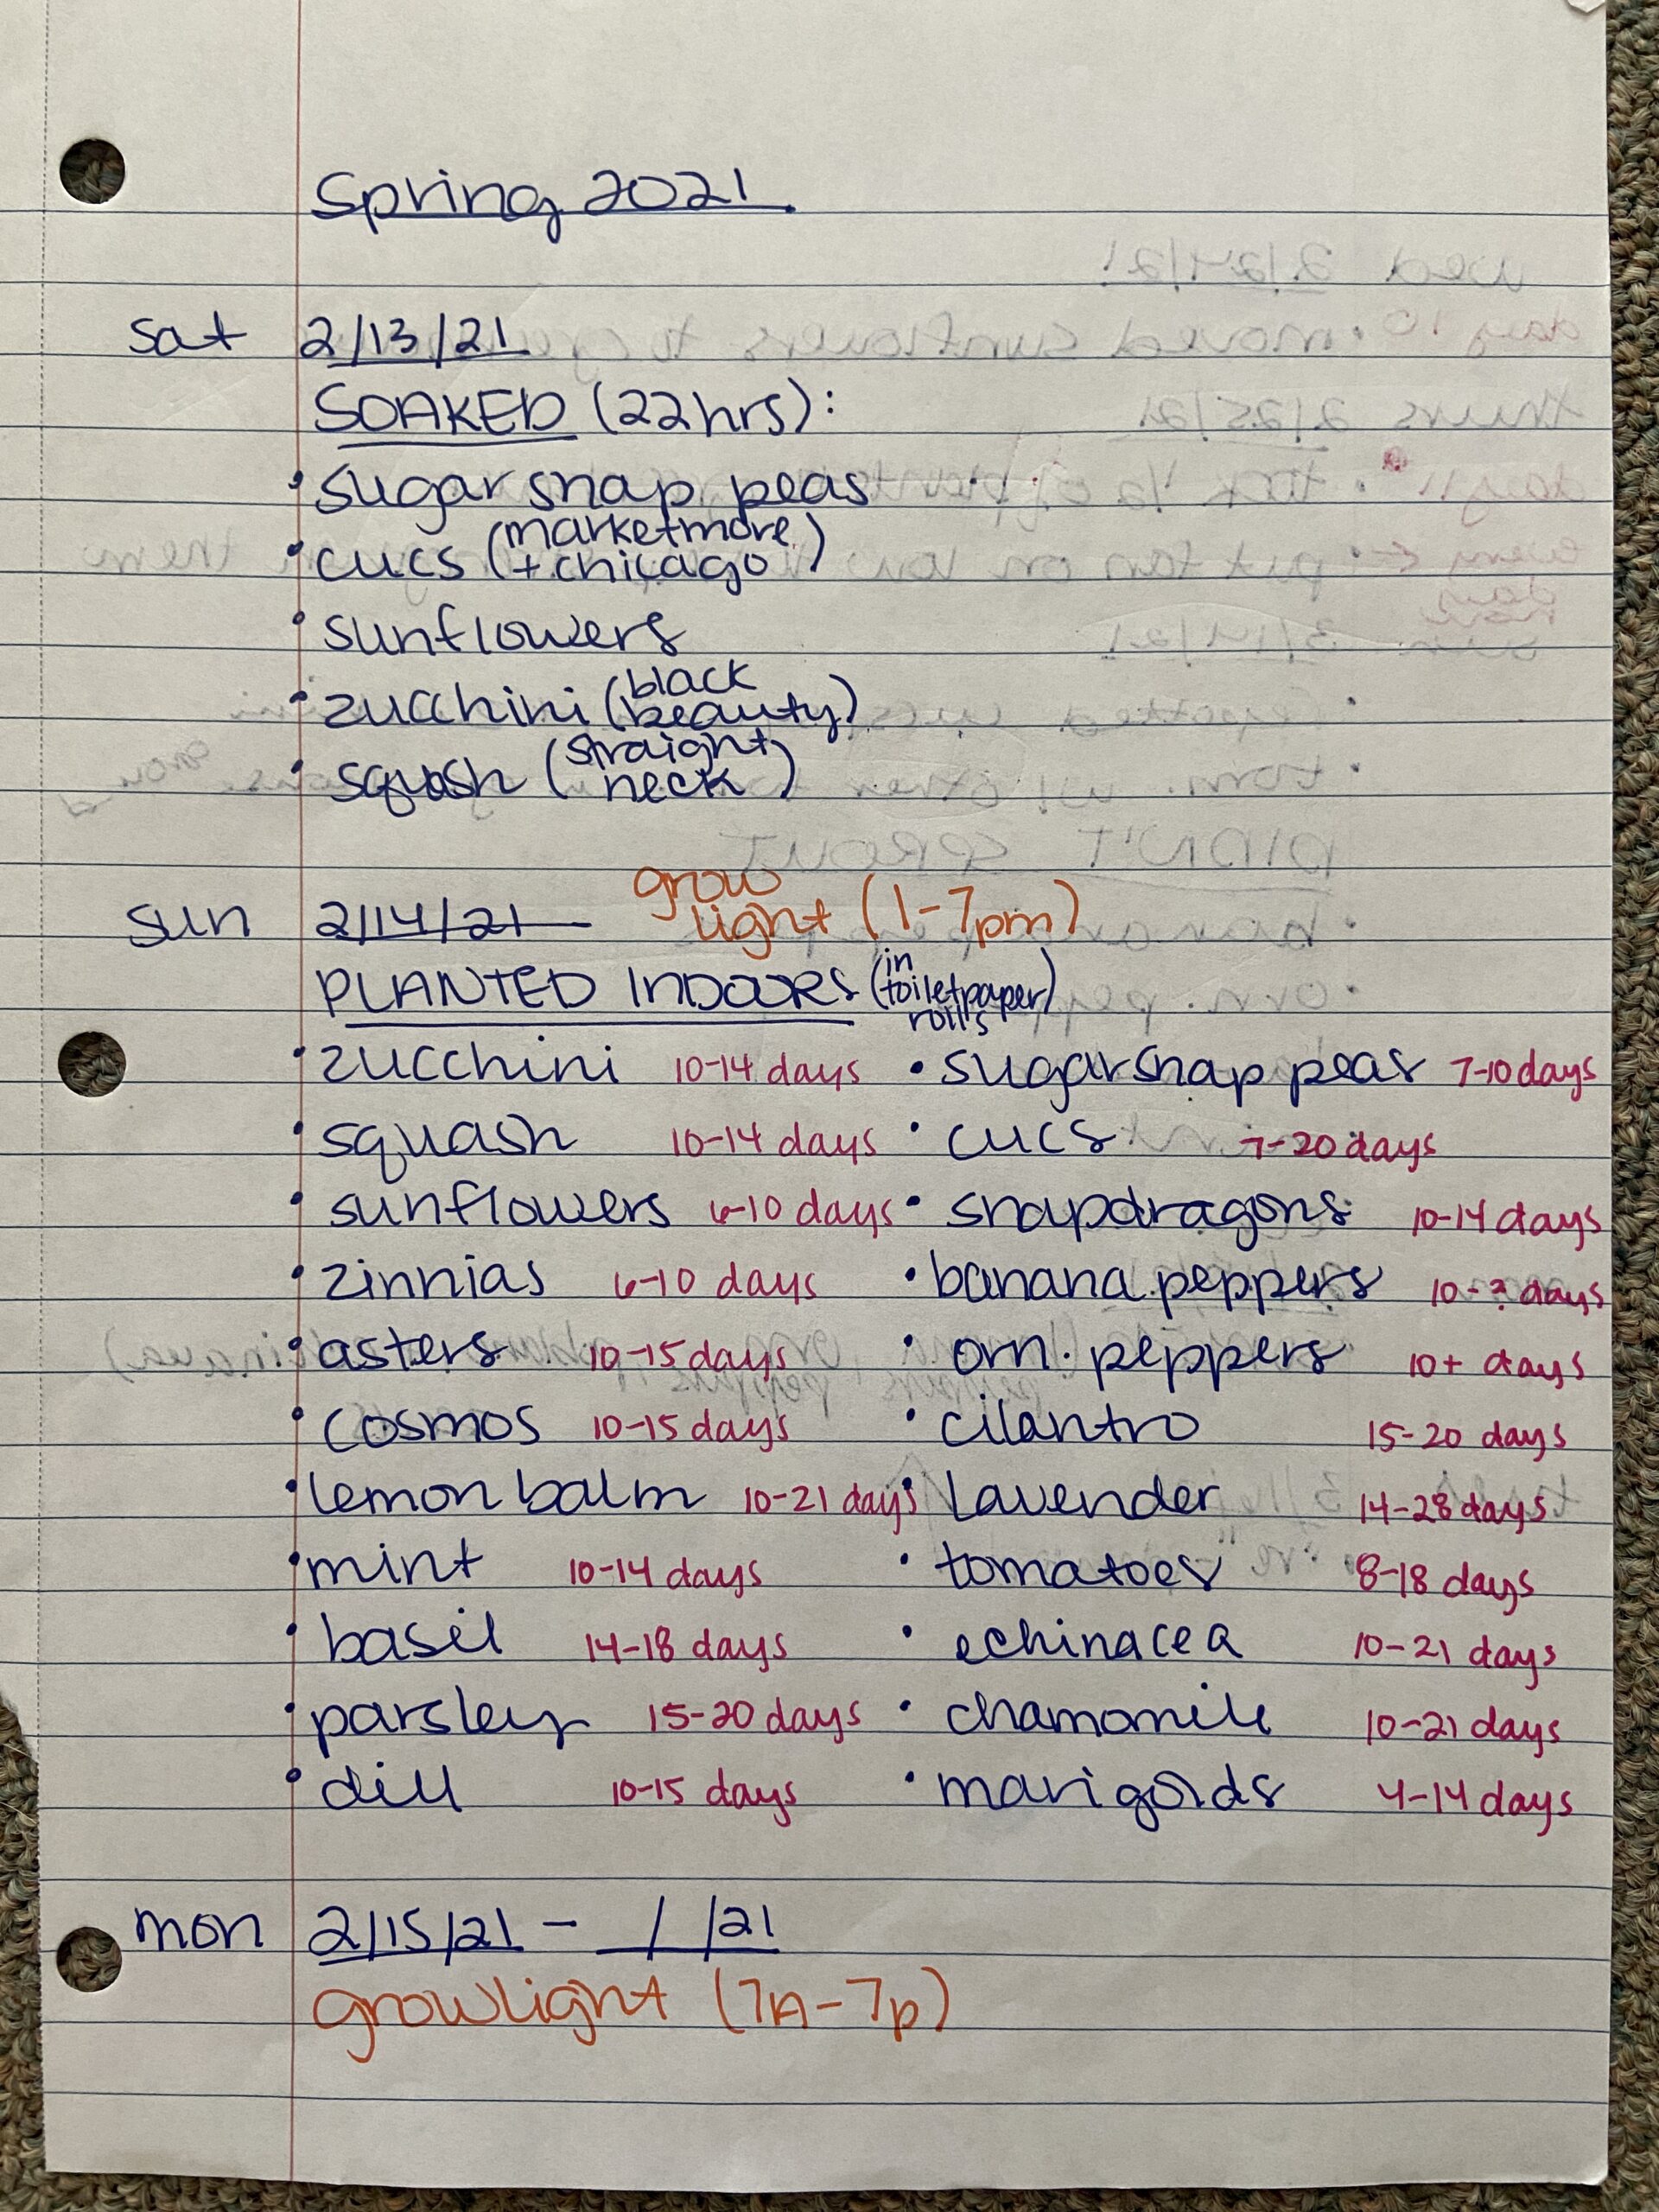 Spring 2021
Sat 2/13/21
SOAKED (22hrs):
• sugar snap peas
• cucs (marketmore + chicago)
• sunflowers
• zucchini (black beauty)
• squash (straight neck)
sun 2/14/21 grow light (1-7pm)
PLANTED INDOORS (in toilet paper rolls)
• zucchini 10-14 days • sugar snap peas 7-10 days
• squash 10-14 days • cucs 7-20 days
• sunflowers 6-10 days • snapdragons 10-14 days
• zinnias 6-10 days • banana peppers 10-? days
• asters 10-15 days • orn. peppers 10+ days
• cosmos 10-15 days • cilantro 15-20 days
• lemon balm 10-21 days • lavender 14-28 days
• mint 10-14 days • tomatoes 8-18 days
• basil 14-18 days • echinacea 10-21 days
• parsley 15-20 days • chamomile 10-21 days
• dill 10-15 days • marigolds 4-14 days
mon 2/15/21 - / /21
growlight (7A-7p)